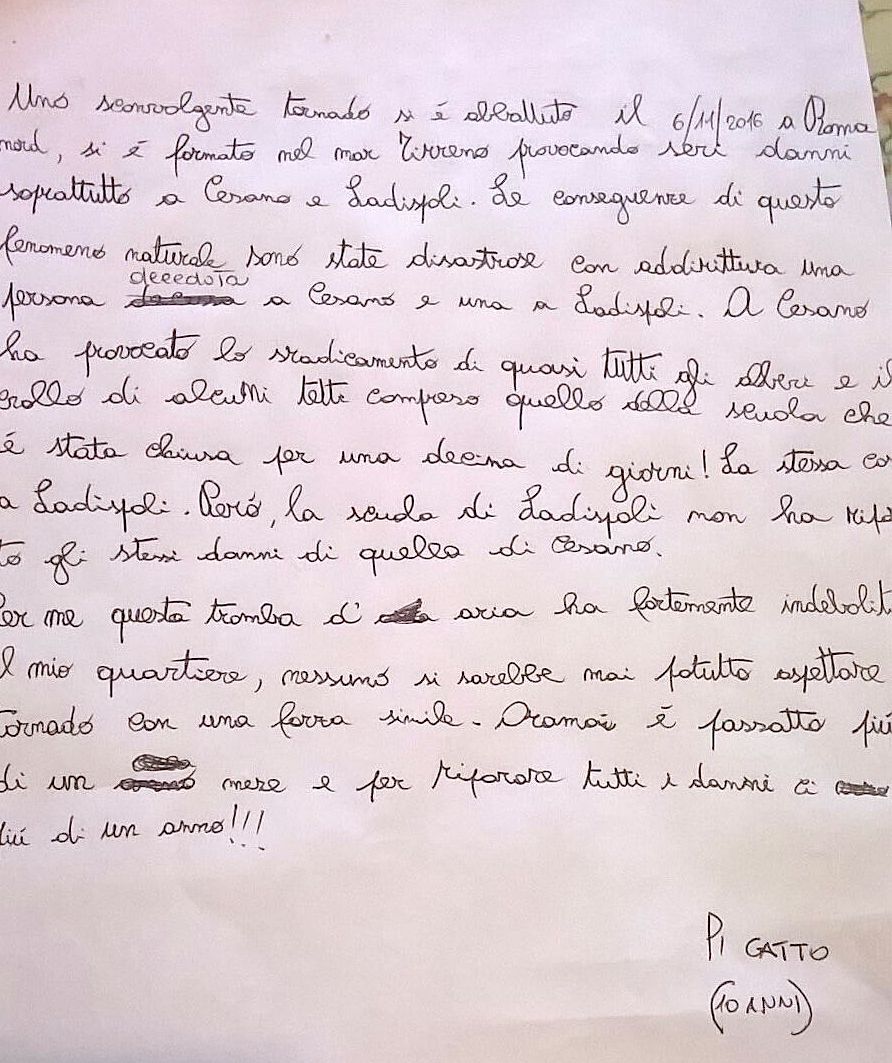 Uno sconvolgente tornado si é abbattuto il 6/11/2016 a Roma
nord, si é formato nel mar Tirreno provocando seri danni
soprattutto a Cesano e Ladispoli. Le conseguenze di questo
fenomeno naturale sono state disastrose con addirittura una
deceduta
persona a Cesano e una a Ladispoli. A Cesano
ha provocato lo sradicamento di quasi tutti gli alberi e il
crollo di alcuni tetti compreso quello della scuola che
é stata chiusa per una decina di giorni! La stessa co
a Ladispoli. Peró, la scuola di Ladispoli non ha ripo
to gli stessi danni di quella di Cesano.
Per me questa tromba d' aria ha fortemente indebolit
l mio quartiere, nessuno si sarebbe mai potutto aspettare
tornado con una forza simile. Oramai é passatto piú
di un mese e per riparare tutti i danni ci
piú di un anno!!!
Pi GATTO
(10 ANNI)